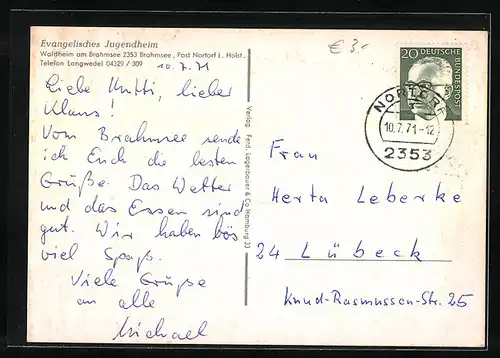 Evangelisches Jugendheim
Waldheim am Brahmsee 2353 Brahmsee, Post Nortorf i. Holst.
Telefon Langwedel 04329 / 309
10.7.71
Liebe Mutti, lieber
Klaus!
Vom Brahmsee sende
ich Euch die besten
Grüße. Das Wetter
und das Essen sind
gut. Wir haben
viel Spaß.
Viele Grüße
an alle
Michael
Verlag Ferd. Lagerbauer & Co Hamburg 33
€ 3,-
20 DEUTSCHE
BUNDESPOST
NORTORF
10.7.71-12
2353
Frau
Herta Leberke
24 Lübeck
Knud-Rasmussen-Str. 25